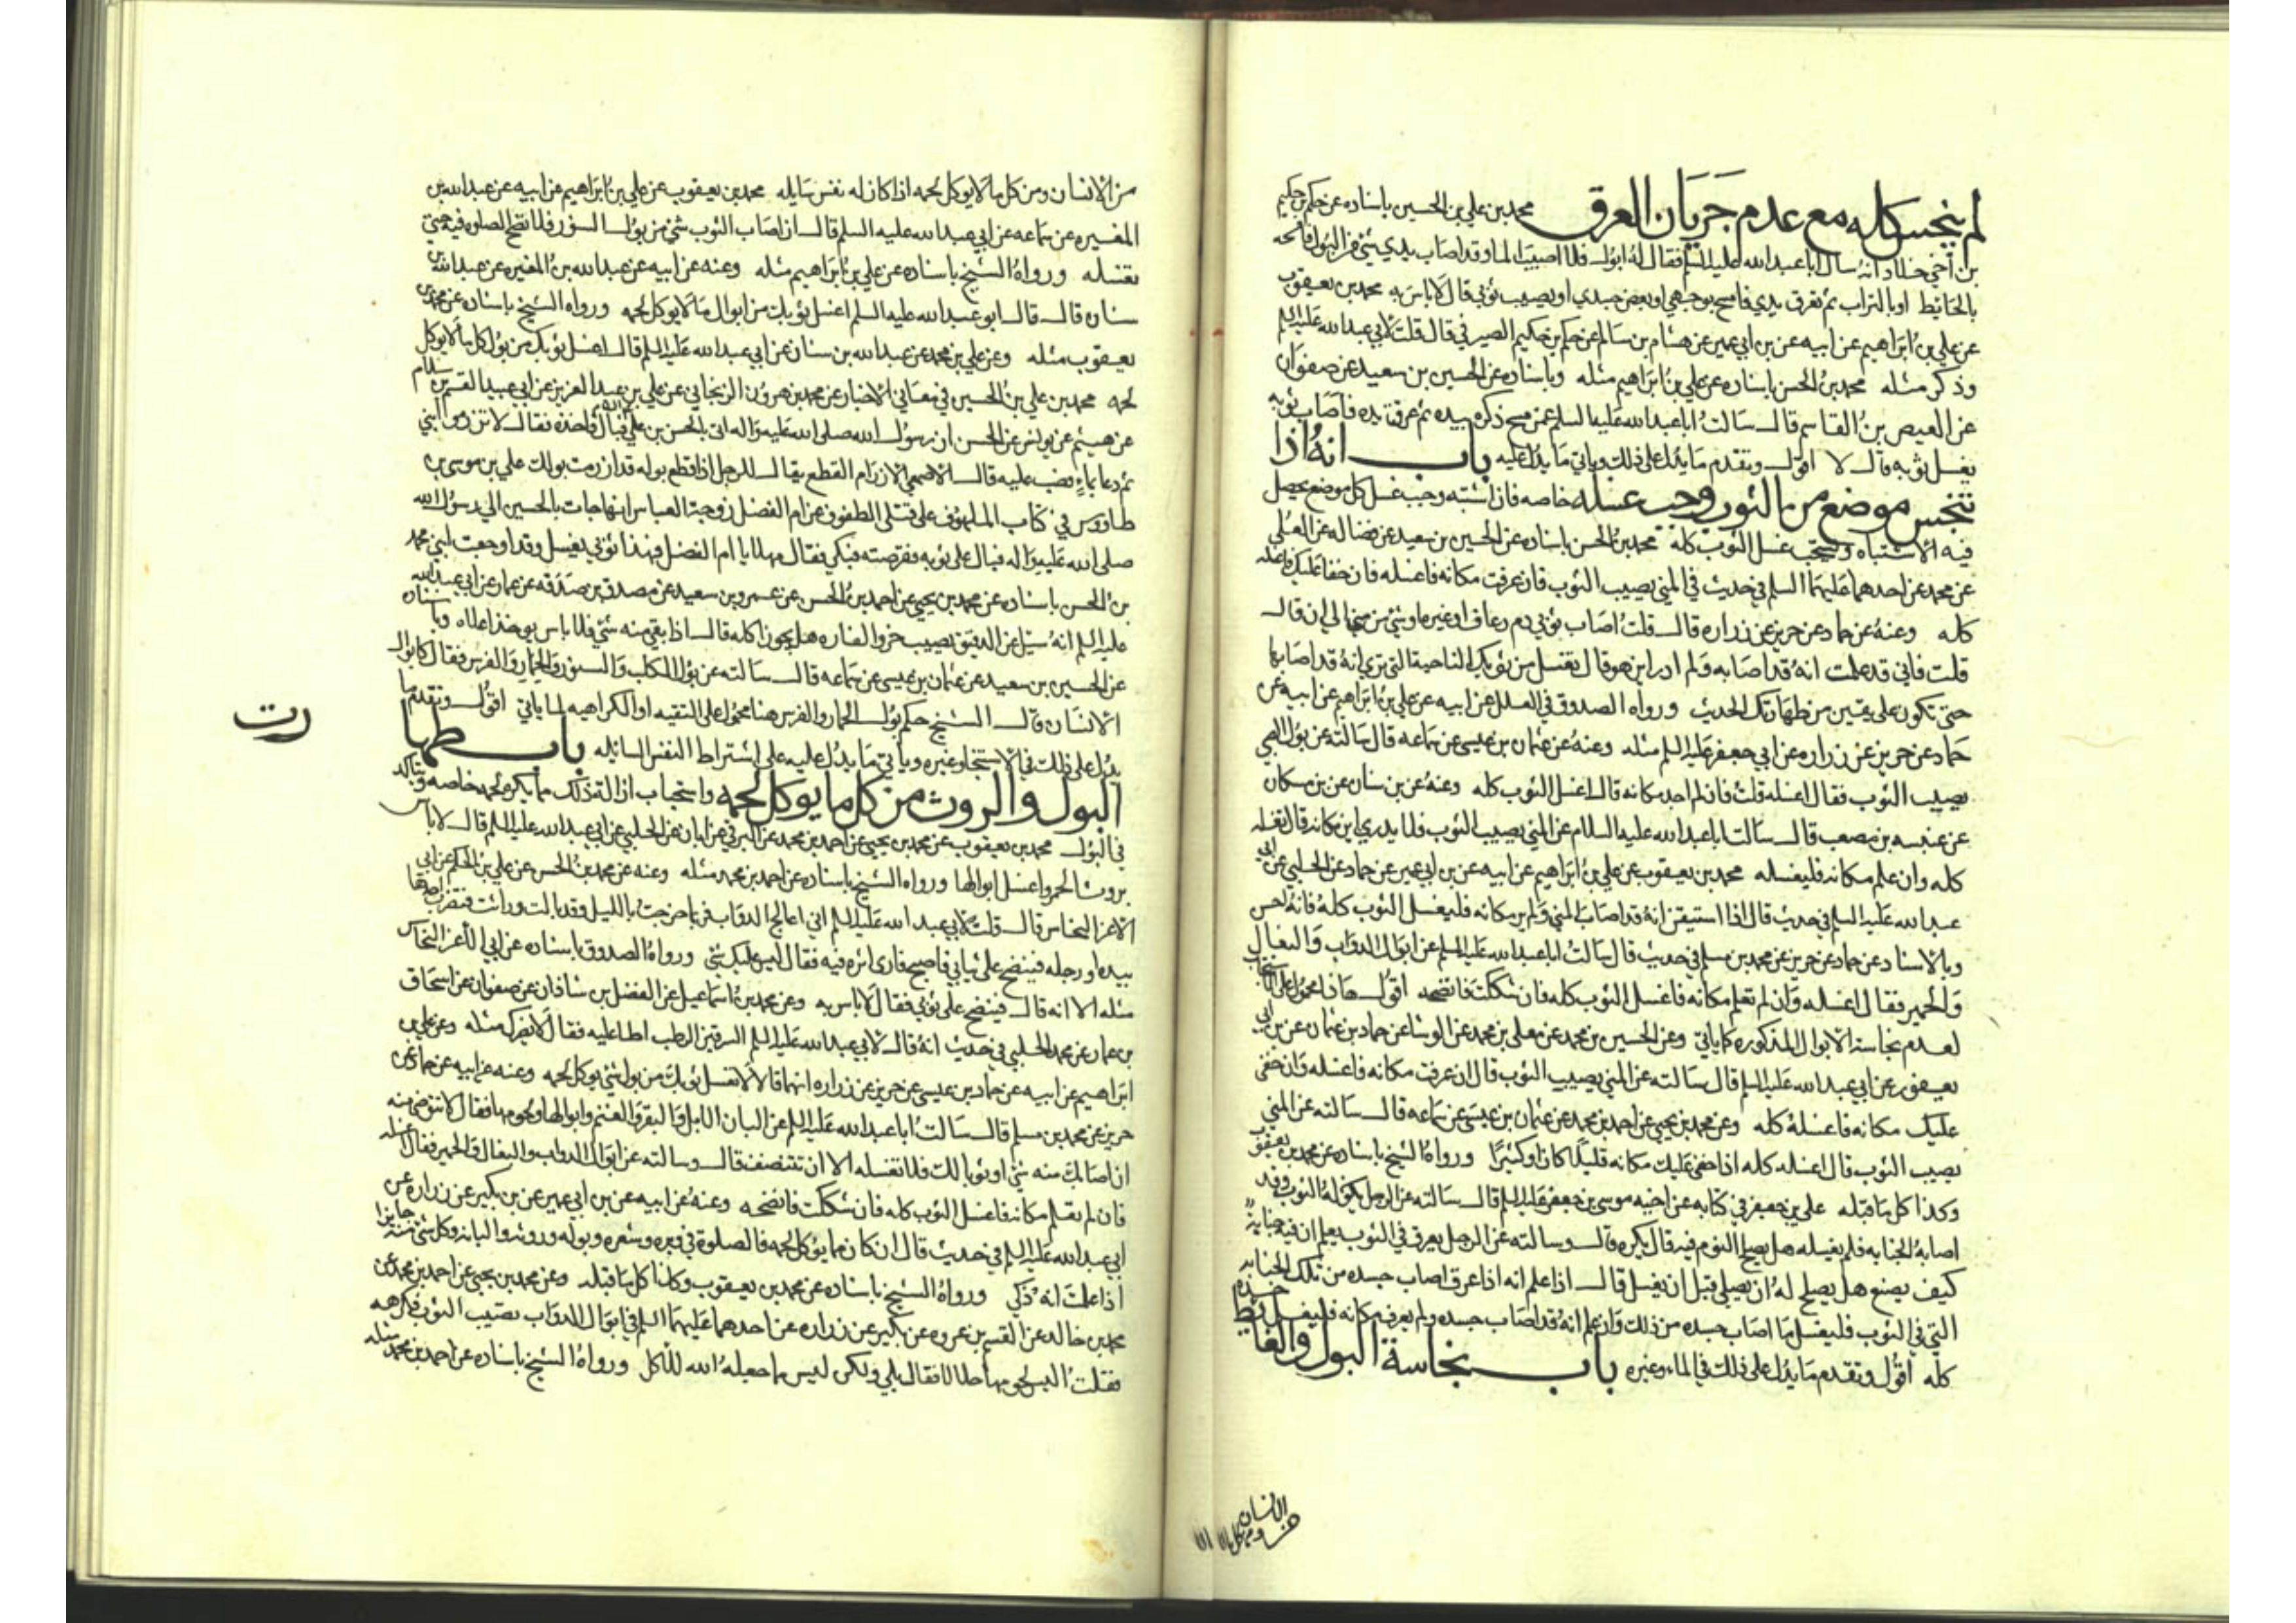 لم ينجس كله مع عدم جريان العرق محمد بن علي بن الحسين باسناده عن حكم بن حكيم
بن اخي خلاد انه سال ابا عبد الله عليه السلم فقال له ابول فلا اصيب الما وقد اصاب يدي شئ من البول فامسحه
بالحايط او بالتراب ثم تعرق يدي فامسح بوجهي او بعض جسدي او يصيب ثوبي قال لا باس به محمد بن يعقوب
عن علي بن ابراهيم عن ابيه عن بن ابي عمير عن هشام بن سالم عن حكم بن حكيم الصيرفي قال قلت لابي عبد الله عليه السلم
وذكر مثله محمد بن الحسن باسناده عن علي بن ابراهيم مثله وباسناده عن الحسين بن سعيد عن صفوان
عن العيص بن القاسم قال سالت ابا عبد الله عليه السلم عمن مسح ذكره بيده ثم عرقت يده فاصاب ثوبه
يغسل ثوبه قال لا اقول وتقدم ما يدل على ذلك وياتي ما يدل عليه باب انه اذا
تنجس موضع من الثوب وجب غسله خاصه فان اشتبه وجب غسل كل موضع يحصل
فيه الاشتباه ويستحب غسل الثوب كله محمد بن الحسن باسناده عن الحسين بن سعيد عن فضاله عن العلى
عن محمد عن احدهما عليهما السلم في حديث في المني يصيب الثوب فان عرفت مكانه فاغسله فان خفا عليك فاغسله
كله وعنه عن حماد عن حريز عن زراره قال قلت اصاب ثوبي دم رعاف او غيره او شئ من مني الي ان قال
قلت فاني قد علمت انه قد اصابه ولم ادر اين هو قال تغسل من ثوبك الناحية التي تري انه قد اصابها
حتى تكون على يقين من طهارتك الحديث ورواه الصدوق في العلل عن ابيه عن علي بن ابراهيم عن ابيه عن
حماد عن حريز عن زراره عن ابي جعفر عليه السلم مثله وعنه عن عثمان بن عيسى عن سماعه قال سالته عن بول الصبي
يصيب الثوب فقال اغسله قلت فان لم اجد مكانه قال اغسل الثوب كله وعنه عن بن سنان عن بن مسكان
عن عنبسه بن مصعب قال سالت ابا عبد الله عليه السلام عن المني يصيب الثوب فلا يدري اين مكانه قال يغسله
كله وان علم مكانه فليغسله محمد بن يعقوب عن علي بن ابراهيم عن ابيه عن بن ابي عمير عن حماد عن الحلبي عن ابي
عبد الله عليه السلم في حديث قال اذا استيقن انه قد اصاب المني ولم ير مكانه فليغسل الثوب كله فانه احسن
وبالاسناد عن حماد عن حريز عن محمد بن مسلم في حديث قال سالت ابا عبد الله عليه السلم عن ابوال الدواب والبغال
والحمير فقال اغسله وان لم تعلم مكانه فاغسل الثوب كله فان شككت فانضحه اقول هذا محمول على الاستحباب
لعدم نجاسة الابوال المذكوره كما ياتي وعن الحسين بن محمد عن معلى بن محمد عن الوشا عن حماد بن عثمان عن بن ابي
يعفور عن ابي عبد الله عليه السلم قال سالته عن المني يصيب الثوب قال ان عرفت مكانه فاغسله وان خفى
عليك مكانه فاغسله كله وعن محمد بن يحيى عن احمد بن محمد عن عثمان بن عيسى عن سماعه قال سالته عن المني
يصيب الثوب قال اغسله كله اذا خفى عليك مكانه قليلا كان او كثيرا ورواه الشيخ باسناده عن محمد بن يعقوب
وكذا كل ما قبله علي بن جعفر في كتابه عن اخيه موسى بن جعفر عليه السلم قال سالته عن الرجل يكون له الثوب وقد
اصابه الجنابه فلم يغسله هل يصلح النوم فيه قال يكره قال وسالته عن الرجل يعرق في الثوب يعلم ان فيه جنابة
كيف يصنع هل يصلح له ان يصلي قبل ان يغسل قال اذا علم انه اذا عرق اصاب جسده من تلك الجنابه
التي في الثوب فليغسل ما اصاب جسده من ذلك وان علم انه قد اصاب جسده ولم يعرف مكانه فليغسل جسده
كله اقول وتقدم ما يدل على ذلك في الماء وغيره باب نجاسة البول والغائط
من الانسان ومن كل ما لا يوكل لحمه اذا كان له نفس سايله محمد بن يعقوب عن علي بن ابراهيم عن ابيه عن عبد الله بن
المغيره عن سماعه عن ابي عبد الله عليه السلم قال ان اصاب الثوب شئ من بول السنور فلا تصح الصلوه فيه حتى
تغسله ورواه الشيخ باسناده عن علي بن ابراهيم مثله وعنه عن ابيه عن عبد الله بن المغيره عن عبد الله بن
سنان قال قال ابو عبد الله عليه السلم اغسل ثوبك من ابوال ما لا يوكل لحمه ورواه الشيخ باسناده عن محمد بن
يعقوب مثله وعن علي بن محمد عن عبد الله بن سنان عن ابي عبد الله عليه السلم قال اغسل ثوبك من بول كل ما لا يوكل
لحمه محمد بن علي بن الحسين في معاني الاخبار عن محمد بن هرون الزنجاني عن علي بن عبد العزيز عن ابي عبيد القسم بن سلام
عن هيثم عن يونس عن الحسن ان رسول الله صلى الله عليه واله اتى بالحسن بن علي فبال فاخذه فقال لا تزرموا ابني
ثم دعا بماء فصب عليه قال الاصمعي الازرام القطع يقال للرجل اذا قطع بوله قد ازرمت بولك علي بن موسى بن
طاووس في كتاب الملهوف على قتلى الطفوف عن ام الفضل زوجة العباس انها جات بالحسين الي رسول الله
صلى الله عليه واله فبال على ثوبه فقرصته فبكي فقال مهلا يا ام الفضل فهذا ثوبي يغسل وقد اوجعت ابني محمد
بن الحسن باسناده عن محمد بن يحيى عن احمد بن الحسن عن عمرو بن سعيد عن مصدق بن صدقه عن عمار عن ابي عبد الله
عليه السلم انه سئل عن الدقيق يصيب خرو الفاره هل يجوز اكله قال اذا بقي منه شئ فلا باس يوخذ اعلاه وباسناده
عن الحسين بن سعيد عن عثمان بن عيسى عن سماعه قال سالته عن بول الكلب والسنور والحمار والفرس فقال كابوال
الانسان قال الشيخ حكم بول الحمار والفرس هنا محمول على التقيه او الكراهيه لما ياتي اقول وتقدم ما
يدل على ذلك في الاستنجا وغيره وياتي ما يدل عليه على اشتراط النفس السائله باب طهارت
البول والروث من كل ما يوكل لحمه واستحباب ازالة ذلك مما يكره لحمه خاصه ويتاكد
في البول محمد بن يعقوب عن محمد بن يحيى عن احمد بن محمد عن البرقي عن ابان عن الحلبي عن ابي عبد الله عليه السلم قال لا باس
بروث الحمر واغسل ابوالها ورواه الشيخ باسناده عن احمد بن محمد مثله وعنه عن محمد بن الحسن عن علي بن الحكم عن ابي
الاعز النخاس قال قلت لابي عبد الله عليه السلم اني اعالج الدواب فربما خرجت بالليل وقد بالت وراثت فتضرب احدها
بيده او رجله فينضح على ثيابي فاصبح فاري اثره فيه فقال ليس عليك شئ ورواه الصدوق باسناده عن ابي الاعز النخاس
مثله الا انه قال فينضح على ثوبي فقال لا باس به وعن محمد بن اسماعيل عن الفضل بن شاذان عن صفوان عن اسحاق
بن عمار عن محمد الحلبي في حديث انه قال لابي عبد الله عليه السلم السرقين الرطب اطا عليه فقال لا يضرك مثله وعن علي بن
ابراهيم عن ابيه عن حماد بن عيسى عن حريز عن زراره انهما قالا لا تغسل ثوبك من بول شئ يوكل لحمه وعنه عن ابيه عن حماد عن
حريز عن محمد بن مسلم قال سالت ابا عبد الله عليه السلم عن البان الابل والبقر والغنم وابوالها ولحومها فقال لا توضي منه
ان اصابك منه شئ او ثوبا لك فلا تغسله الا ان تتنصف قال وسالته عن ابوال الدواب والبغال والحمير فقال اغسله
فان لم تعلم مكانه فاغسل الثوب كله فان شككت فانضحه وعنه عن ابيه عن بن ابي عمير عن بن بكير عن زراره عن
ابي عبد الله عليه السلم في حديث قال ان كان مما يوكل لحمه فالصلوة في وبره وشعره وبوله وروثه والبانه وكل شئ منه جايزا
اذا علمت انه ذكي ورواه الشيخ باسناده عن محمد بن يعقوب وكذا كل ما قبله وعن محمد بن يحيى عن احمد بن محمد عن
محمد بن خالد عن القسم بن عروه عن بكير عن زراره عن احدهما عليهما السلم في ابوال الدواب تصيب الثوب فكرهه
فقلت اليس لحومها حلالا فقال بلي ولكن ليس مما جعله الله للاكل ورواه الشيخ باسناده عن احمد بن محمد مثله
رت